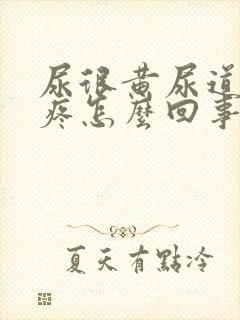 尿很黄尿道
疼怎麼回事
夏天有點冷